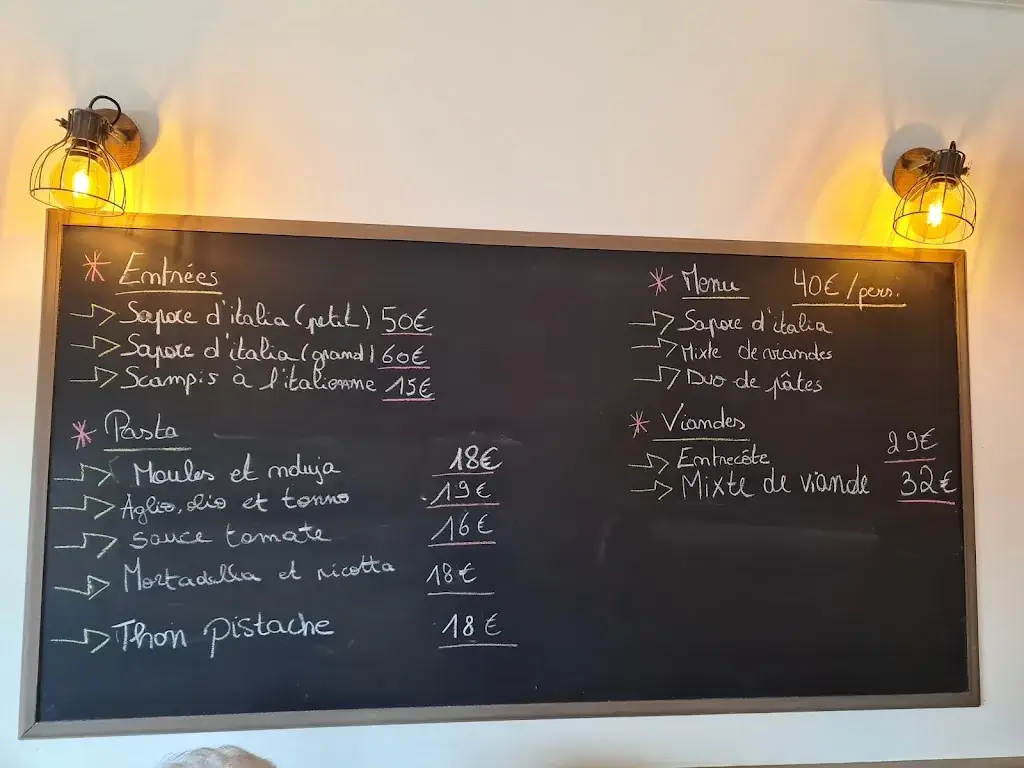 * Entrées
Sapore d'italia (petit) 50€
Sapore d'italia (grand) 60€
Scampis à l'italienne 15€
* Pasta
Moules et nduja 18€
Aglio, olio et tonno 19€
sauce tomate 16€
Mortadella et ricotta 18€
Thon pistache 18€
* Menu 40€/pers.
Sapore d'italia
Mixte de viandes
Duo de pâtes
* Viandes
Entrecôte 29€
Mixte de viande 32€